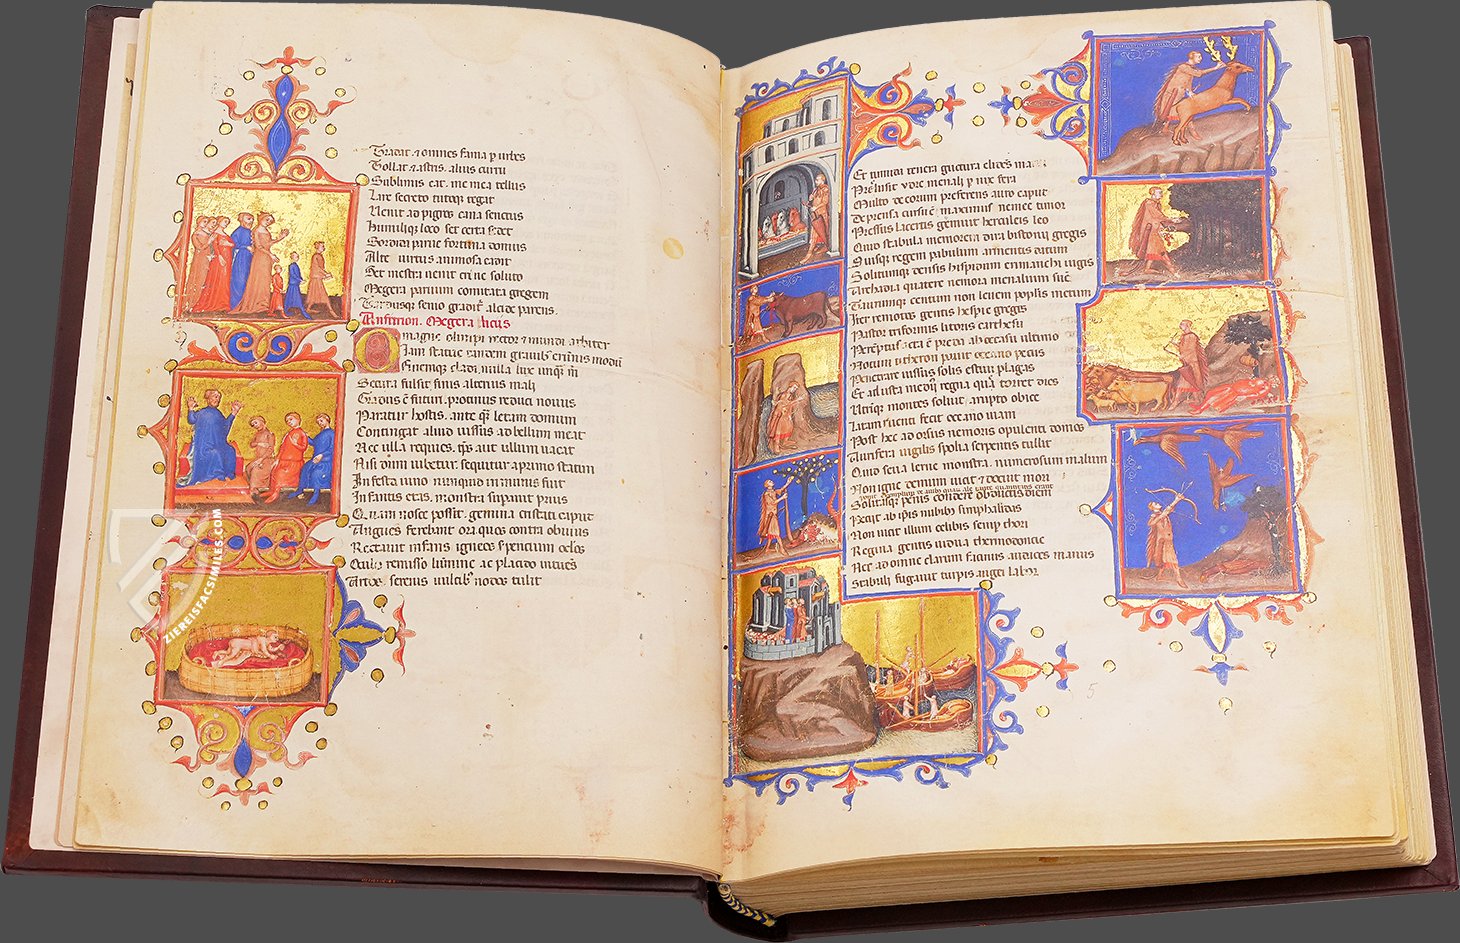 Tradat ⁊ omnes fama p urbes
Tollat ⁊ astris. alius curru
Sublimis eat. me mea tellus
Lare secreto tutoq; tegat
Venit ad pigros cana senectus
Humiliq; loco set certa sedet
Sordida parue fortuna domus
Alte virtus animosa cadit
Set mesta uenit crine soluto
Megera paruum comitata gregem
Tardusque senio gradit alcide parens.
Anfitrion. Megera licus
O magne olimpi rector ⁊ mundi arbiter
Iam statue tandem grauibus erumnis modum
Finemque cladi. nulla lux unqm m
Secura fulsit. finis alterius mali
Gradus e futuri. protinus reduci nouus
Paratur hostis. ante qm letam domum
Contingat. aliud iussus ad bellum meat
Nec ulla requies. tps aut ullum uacat
Nisi dum iubetur. sequitur a primo statim
Infesta iuno. numquid immunis fuit
Infantis etas. monstra supauit prius
Quam nosce posset. gemina cristati caput
Angues ferebant ora. quos contra obuius
Reptauit infans. igneos serpentium oclos
Oculis remisso lumine ac placido intuens
Artos serenis uultibus nodos tulit
Et tumida tenera guttura elidens manu
Prelusit ydre. menali p nix fera
Multo decorum preferens auro caput
Deprensa cursu e. maximus nemee timor
Pressus lacertis gemuit herculeis leo
Quid stabula memorem dira bistonii gregis
Suisq; regem pabulum armentis datum
Solitumq; densis hispidum erimanthi iugis
Archadia quatere nemora menalium sue
Taurumq; centum non leuem poplis metum
Inter remotos gentis hesperie greges
Pastor triformis litoris carthesii
Peremptus. acta e preda ab occasu ultimo
Notum citheron pauit occeano pecus
Penetrare iussus solis estiui plagas
Et adusta medius regna que torret dies
Utriq; montes soluit. arupto obice
Latam ruenti fecit occeano uiam
Post hec adorsus nemoris opulenti domos
Aurifera uigilis spolia serpentis tullit
Quid seua lerne monstra. numerosum malum
Non igne demum uicit ⁊ docuit mori
Solitasq; pennis condere obductis diem
Petit ab ipsis nubibus stimphalidas
Non uicit illum celibis semp thori
Regina gentis uidua thermodontie
Nec ad omne clarum facinus audaces manus
Stabuli fugauit turpis augei labor
5
ZIEREISFACSIMILES.COM